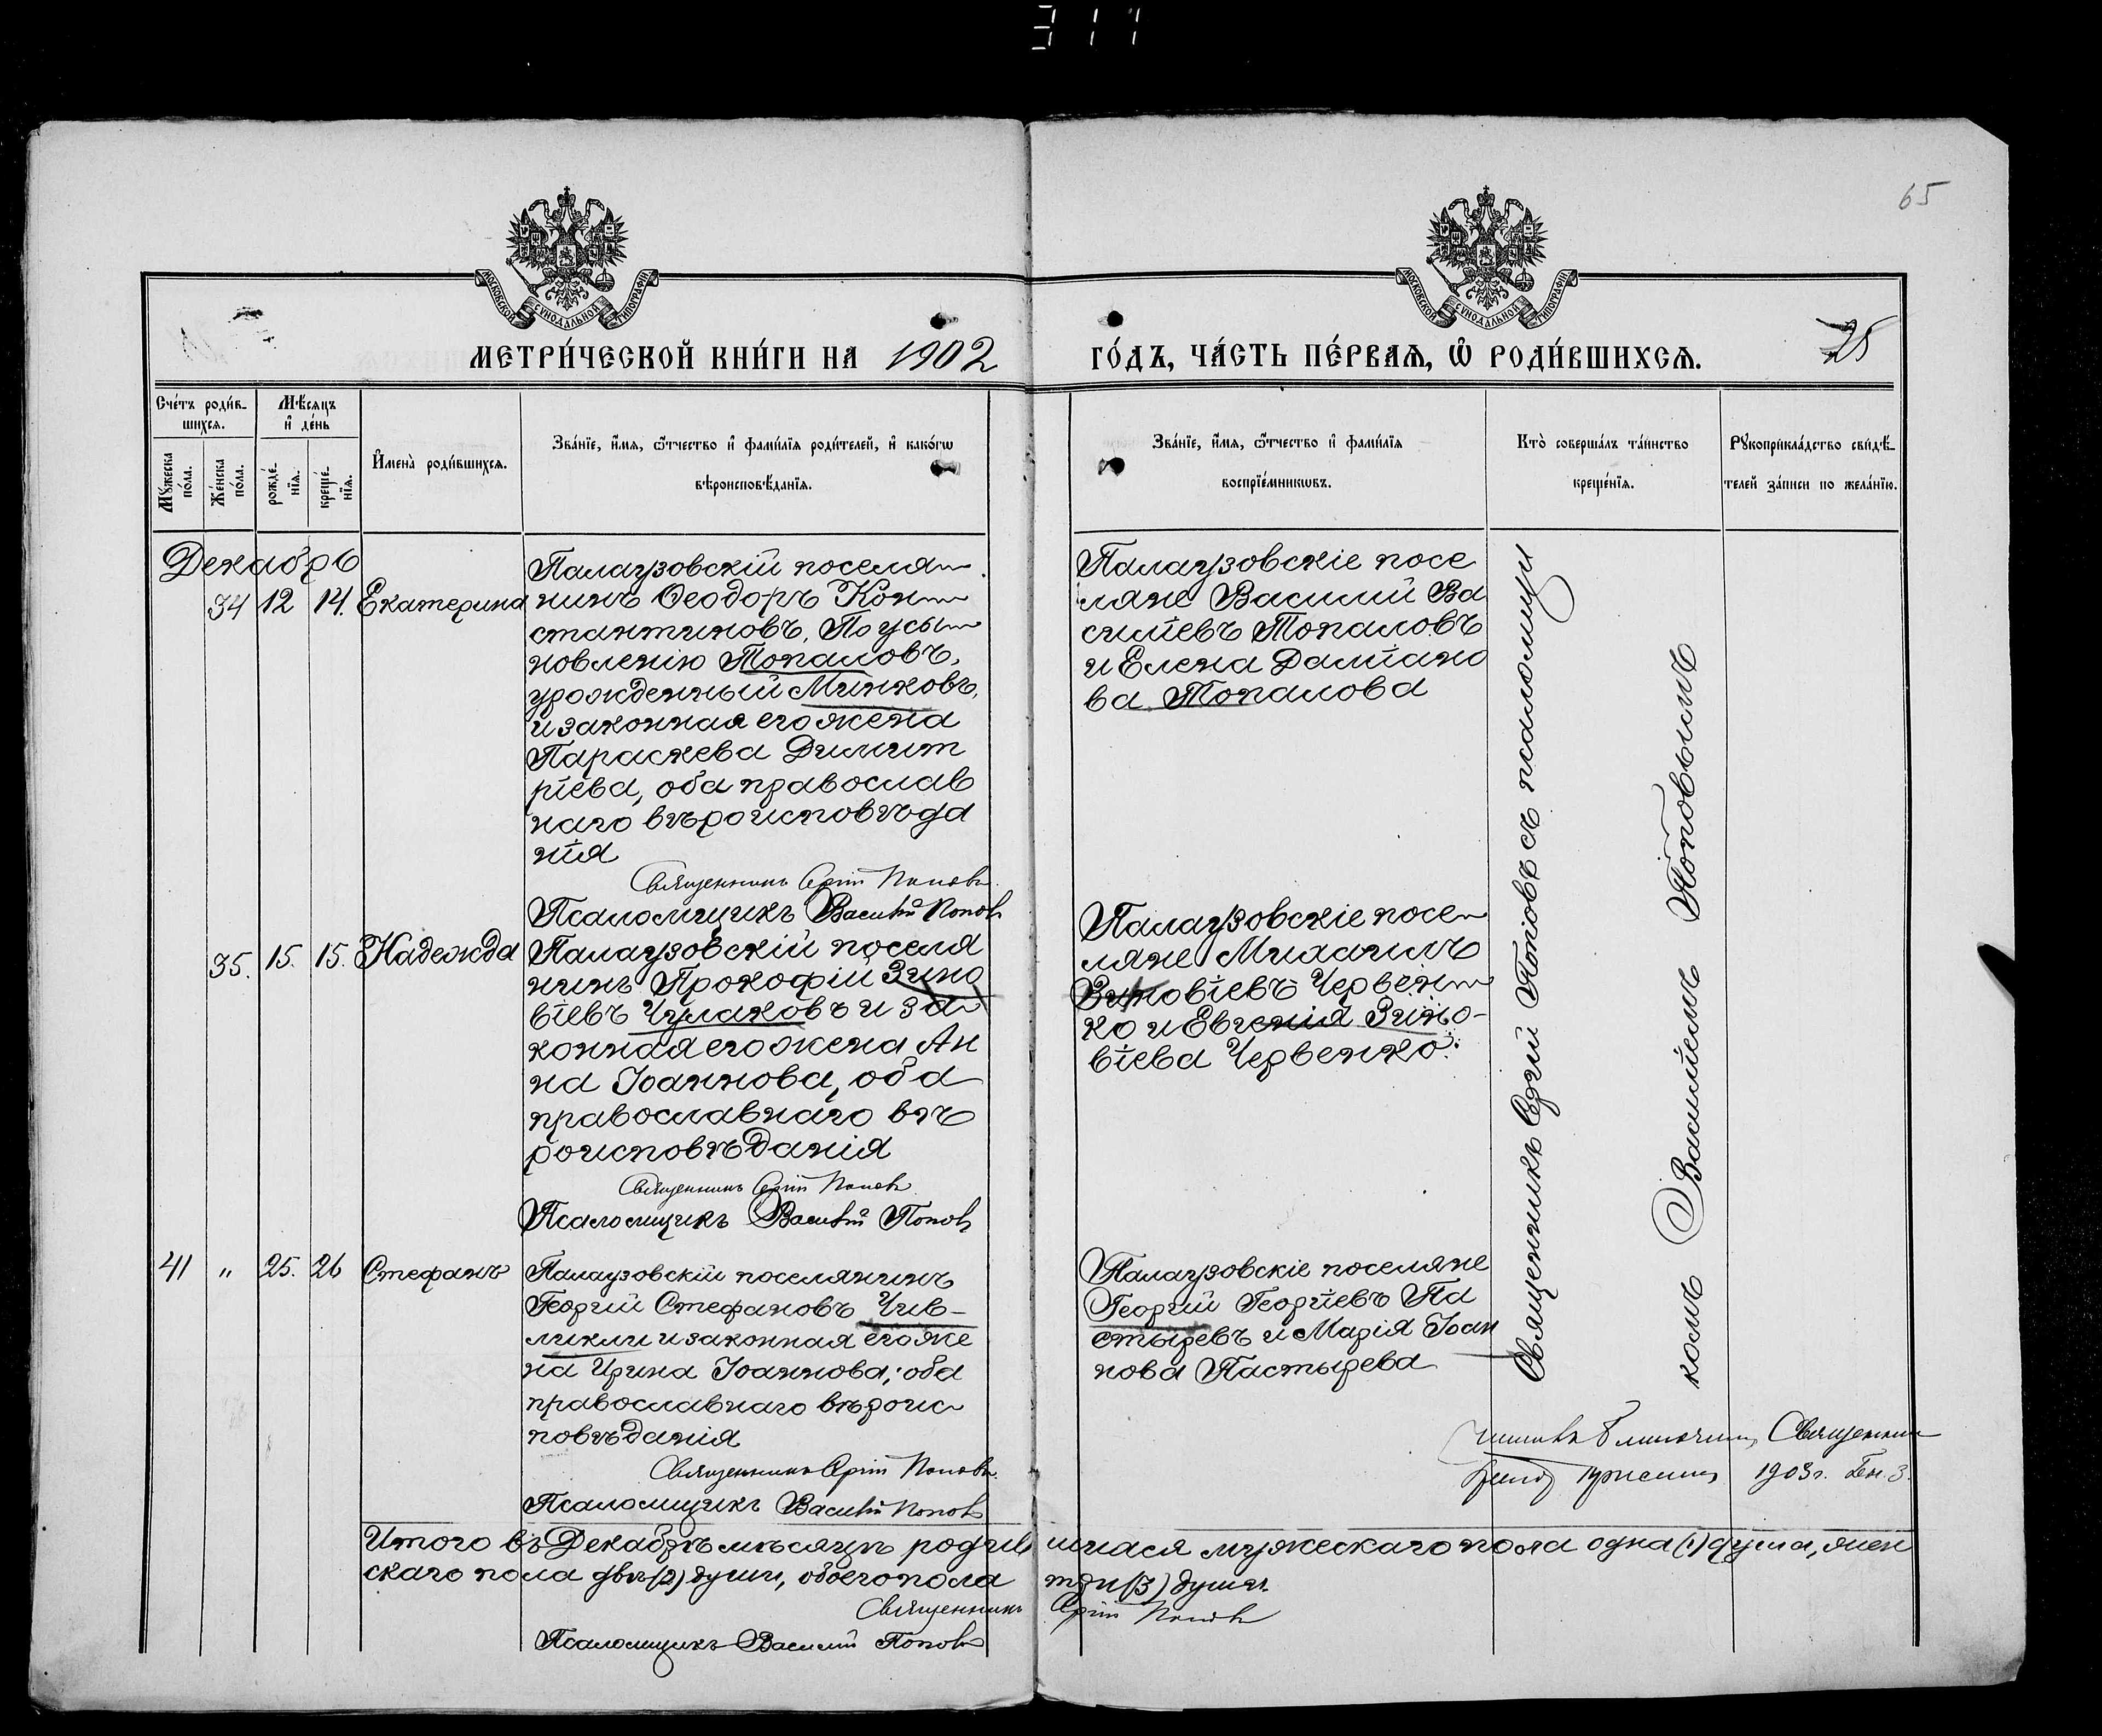 317
65
МОСКОВСКОЙ СѴНОДАЛЬНОЙ ТИПОГРАФІИ
МОСКОВСКОЙ СѴНОДАЛЬНОЙ ТИПОГРАФІИ
МЕТРИ́ЧЕСКОЙ КНИ́ГИ НА 1902
ГО́ДЪ, ЧА́СТЬ ПЕ́РВАѦ, Ѡ҆ РОДИ́ВШИХСѦ.
25
Сче́тъ роди́в-
шихсѧ.
Мѣ́сѧцъ
и҆ де́нь
Мꙋ́жеска
по́ла.
Же́нска
по́ла.
рожде́-
нїѧ.
креще́-
нїѧ.
И҆мена̀ роди́вшихсѧ.
Зва́нїе, и҆́мѧ, ѻ҆́тчество и҆ фами́лїѧ роди́телей, и҆ како́гѡ
вѣроисповѣ́данїѧ.
Зва́нїе, и҆́мѧ, ѻ҆́тчество и҆ фами́лїѧ
воспрїе́мникѡвъ.
Кто̀ соверша́лъ та́инство
креще́нїѧ.
Рꙋкоприкла́дство свидѣ́-
телей за́писи по жела́нїю.
Декабрь
34 12 14. Екатерина
Палаузовскій поселя
нинъ Ѳеодоръ Кон
стантиновъ, По усы
новленію Топаловъ,
урожденный Минковъ,
и законная его жена
Параскева Димит
ріева, оба православ
наго вѣроисповѣда
нія
Священникъ Сергій Поповъ
Псаломщикъ Василій Поповъ
Палаузовскіе посе
ляне Василий Ва
силіевъ Топаловъ
и Елена Даміано
ва Топалова
35. 15. 15. Надежда
Палаузовскій поселя
нинъ Прокофій Зино
віевъ Чулаковъ и за
конная его жена Ан
на Іоаннова, оба
православнаго вѣ
роисповѣданія
Священникъ Сергій Поповъ
Псаломщикъ Василій Поповъ
Палаузовскіе посе
ляне Михаилъ
Зиновіевъ Червен
ко и Евгенія Зино-
віева Червенко.
41 " 25. 26 Стефанъ
Палаузовскій поселянинъ
Георгий Стефановъ Чив-
ликли и законная его же
на Ирина Іоаннова, оба
православнаго вѣроис
повѣданія
Священникъ Сергій Поповъ
Псаломщикъ Василій Поповъ
Палаузовскіе поселяне
Георгий Георгіевъ Па
стыревъ и Марія Іоан
нова Пастырева
Священникъ Сергій Поповъ съ псаломщи
комъ Василіемъ Поповымъ
Священник
1903 г.
Итого въ Декабрѣ мѣсяцѣ родив шася мужескаго пола одна (1) душа, жен
скаго пола двѣ (2) души, обоего пола три (3) души.
Священникъ Сергій Поповъ
Псаломщикъ Василій Поповъ